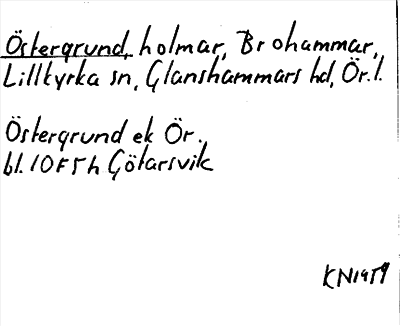 Östergrund, holmar, Brohammar,
Lillkyrka sn, Glanshammars hd, Ör. l.
Östergrund ek Ör.
bl. 10F5h Götarsvik
KN1959